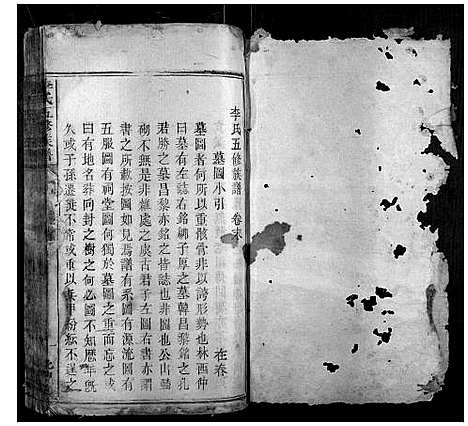 李氏五修族譜 卷末
墓圖小引 在春
墓圖者何所以重骸骨非以誇形勢也林西仲
曰墓有左誌右銘柳子厚之墓韓昌黎銘之孔
君勝之墓昌黎亦銘之皆誌也非圖也公山
砌不無是非雖處之虞古君子左圖右書亦謂
書之所載按圖如見焉譜有系圖有源流圖有
五服圖有祠堂圖何獨於墓圖之重而忘之或
曰有地名葬向封之樹之何必圖不知歷年既
久或子孫遷徙不常或重以兵甲紛紜不遑之
李氏五修族譜